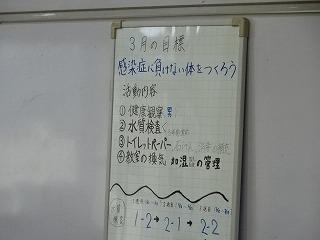 3月の目標
感染症に負けない体をつくろう
活動内容
①健康観察 男
②水質検査
③トイレットペーパー、石けん
④教室の換気 加湿の管理
1-2→2-1→2-2